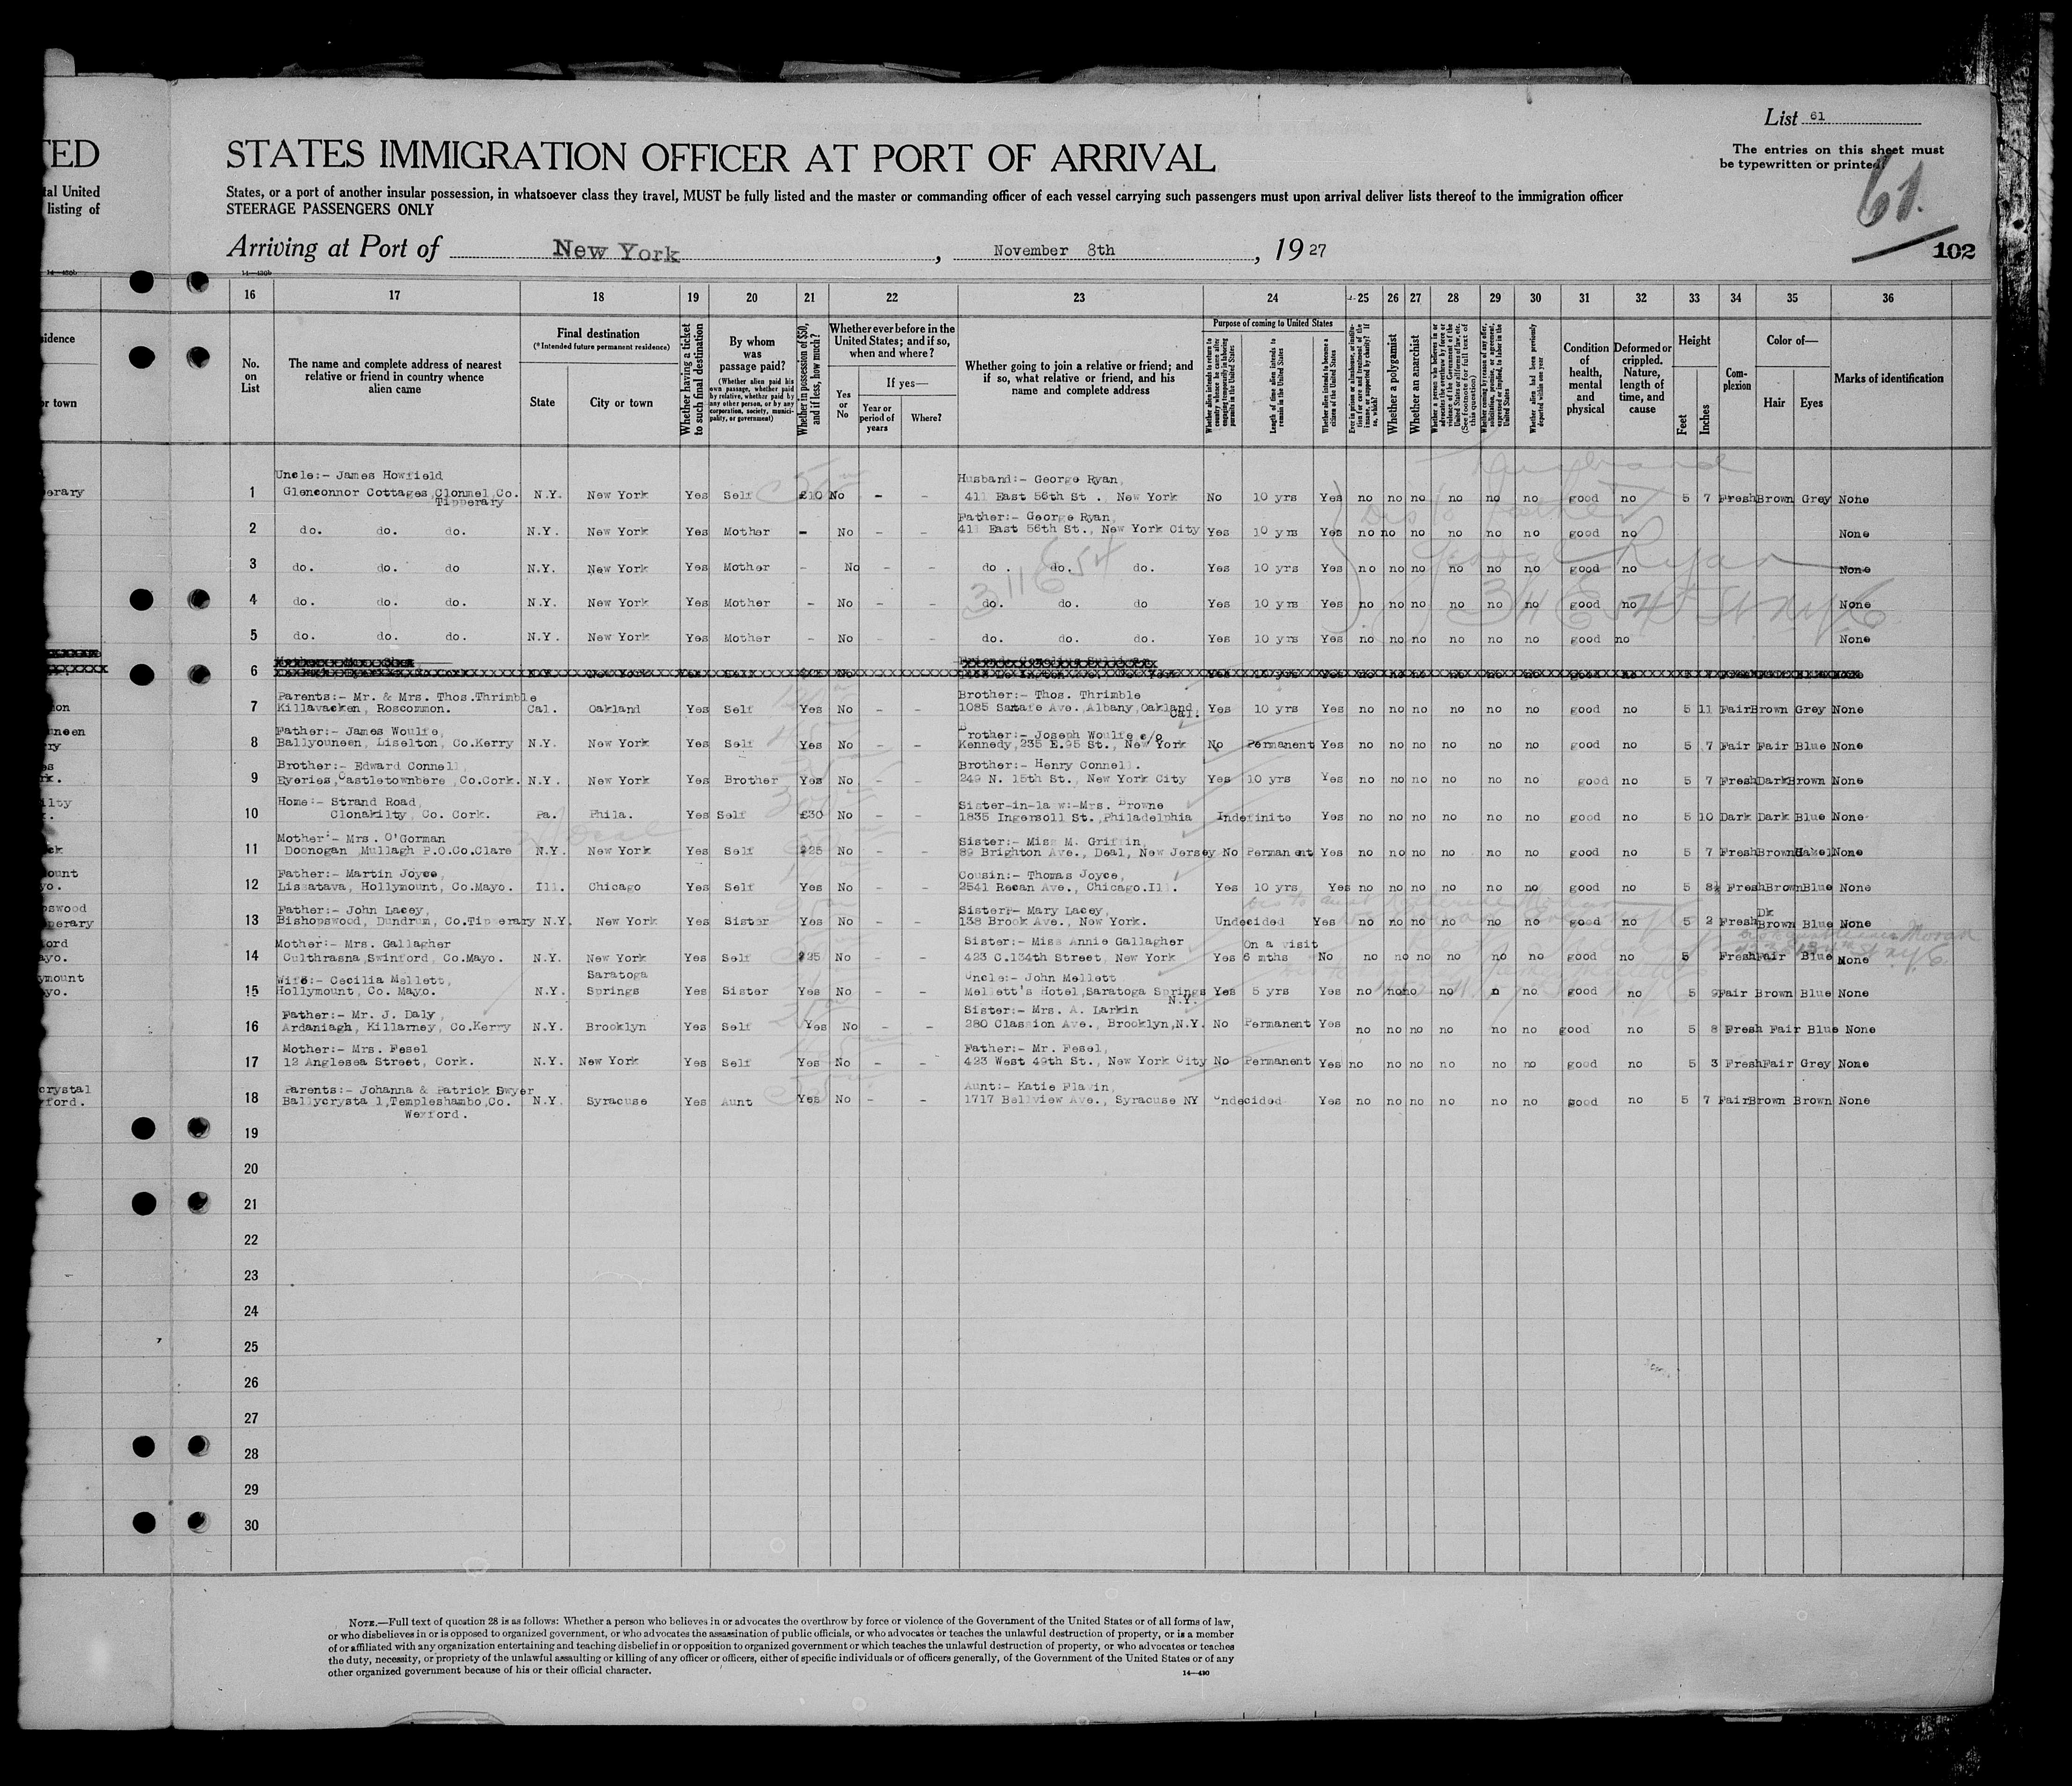 List 61
TED
STATES IMMIGRATION OFFICER AT PORT OF ARRIVAL
The entries on this sheet must
be typewritten or printed.
61.
tal United
listing of
States, or a port of another insular possession, in whatsoever class they travel, MUST be fully listed and the master or commanding officer of each vessel carrying such passengers must upon arrival deliver lists thereof to the immigration officer
STEERAGE PASSENGERS ONLY
Arriving at Port of New York, November 8th, 1927
102
16 17 18 19 20 21 22 23 24 25 26 27 28 29 30 31 32 33 34 35 36
No. on List
The name and complete address of nearest relative or friend in country whence alien came
Final destination
(*Intended future permanent residence)
State
City or town
Whether having a ticket to such final destination
By whom was passage paid?
(Whether alien paid his own passage, whether paid by relative, whether paid by any other person, or by any corporation, society, municipality, or government)
Whether in possession of $50, and if less, how much?
Whether ever before in the United States; and if so, when and where?
Yes or No
If yes—
Year or period of years
Where?
Whether going to join a relative or friend; and if so, what relative or friend, and his name and complete address
Purpose of coming to United States
Length of time alien intends to remain in the United States
Whether alien intends to become a citizen of the United States
Whether a polygamist
Whether an anarchist
Condition of health, mental and physical
Deformed or crippled. Nature, length of time, and cause
Height
Feet
Inches
Complexion
Color of—
Hair
Eyes
Marks of identification
Uncle:- James Howfield Husband:- George Ryan,
1 Glenconnor Cottages, Clonmel, Co. Tipperary N.Y. New York Yes Self £10 No - - 411 East 56th St., New York No 10 yrs Yes no no no no no no good no 5 7 Fresh Brown Grey None
Father:- George Ryan,
2 do. do. do. N.Y. New York Yes Mother - No - - 411 East 56th St., New York City Yes 10 yrs Yes no no no no no no good no None
3 do. do. do N.Y. New York Yes Mother - No - - do. do. do. Yes 10 yrs Yes no no no no no no good no None
4 do. do. do. N.Y. New York Yes Mother - No - - do. do. do Yes 10 yrs Yes no no no no no no good no None
5 do. do. do. N.Y. New York Yes Mother - No - - do. do. do. Yes 10 yrs Yes no no no no no no good no None
6
Parents:- Mr. & Mrs. Thos.Thrimble Brother:- Thos. Thrimble
7 Killavacken, Roscommon. Cal. Oakland Yes Self Yes No - - 1085 Santafe Ave. Albany, Oakland, Cal. Yes 10 yrs Yes no no no no no no good no 5 11 Fair Brown Grey None
Father:- James Woulfe, Brother:- Joseph Woulfe c/o
8 Ballyouneen, Liselton, Co.Kerry N.Y. New York Yes Self Yes No - - Kennedy,235 E.95 St., New York No Permanent Yes no no no no no no good no 5 7 Fair Fair Blue None
Brother:- Edward Connell, Brother:- Henry Connell.
9 Eyeries,Castletownbere,Co.Cork. N.Y. New York Yes Brother Yes No - - 249 N. 15th St., New York City Yes 10 yrs Yes no no no no no no good no 5 7 Fresh Dark Brown None
Home:- Strand Road, Sister-in-law:-Mrs. Browne
10 Clonakilty, Co. Cork. Pa. Phila. Yes Self £30 No - - 1835 Ingersoll St., Philadelphia Indefinite Yes no no no no no no good no 5 10 Dark Dark Blue None
Mother:- Mrs. O'Gorman Sister:- Miss M. Griffin,
11 Doonogan, Mullagh P.O.Co.Clare N.Y. New York Yes Self $25 No - - 89 Brighton Ave., Deal, New Jersey No Permanent Yes no no no no no no good no 5 7 Fresh Brown Hazel None
Father:- Martin Joyce, Cousin:- Thomas Joyce,
12 Lissatava, Hollymount, Co.Mayo. Ill. Chicago Yes Self Yes No - - 2541 Recan Ave., Chicago.Ill. Yes 10 yrs Yes no no no no no no good no 5 8½ Fresh Brown Blue None
Father:- John Lacey, Sister:- Mary Lacey,
13 Bishopswood, Dundrum, Co.Tipperary N.Y. New York Yes Sister Yes No - - 138 Brook Ave., New York. Undecided Yes no no no no no no good no 5 2 Fresh Dk Brown Blue None
Mother:- Mrs. Gallagher Sister:- Miss Annie Gallagher On a visit
14 Culthrasna,Swinford, Co.Mayo. N.Y. New York Yes Self $25 No - - 423 C.134th Street, New York Yes 6 mths No no no no no no no good no 5 Fresh Fair Blue None
Wife:- Cecilia Mellett, Saratoga Uncle:- John Mellett
15 Hollymount, Co. Mayo. N.Y. Springs Yes Sister Yes No - - Mellett's Hotel,Saratoga Springs N.Y. Yes 5 yrs Yes no no no no n no good no 5 9 Fair Brown Blue None
Father:- Mr. J. Daly, Sister:- Mrs. A. Larkin
16 Ardaniagh, Killarney, Co.Kerry N.Y. Brooklyn Yes Self Yes No - - 280 Classion Ave., Brooklyn,N.Y. No Permanent Yes no no no no no no good no 5 8 Fresh Fair Blue None
Mother:- Mrs. Fesel Father:- Mr. Fesel,
17 12 Anglesea Street, Cork. N.Y. New York Yes Self Yes No - - 423 West 49th St., New York City No Permanent Yes no no no no no no good no 5 3 Fresh Fair Grey None
Parents:- Johanna & Patrick Dwyer Aunt:- Katie Flavin,
18 Ballycrystal,Templeshambo,Co. Wexford. N.Y. Syracuse Yes Aunt Yes No - - 1717 Bellview Ave., Syracuse NY Undecided Yes no no no no no no good no 5 7 Fair Brown Brown None
19
20
21
22
23
24
25
26
27
28
29
30
NOTE.—Full text of question 28 is as follows: Whether a person who believes in or advocates the overthrow by force or violence of the Government of the United States or of all forms of law,
or who disbelieves in or is opposed to organized government, or who advocates the assassination of public officials, or who advocates or teaches the unlawful destruction of property, or is a member
of or affiliated with any organization entertaining and teaching disbelief in or opposition to organized government or which teaches the unlawful destruction of property, or who advocates or teaches
the duty, necessity, or propriety of the unlawful assaulting or killing of any officer or officers, either of specific individuals or of officers generally, of the Government of the United States or of any
other organized government because of his or their official character.
14—430